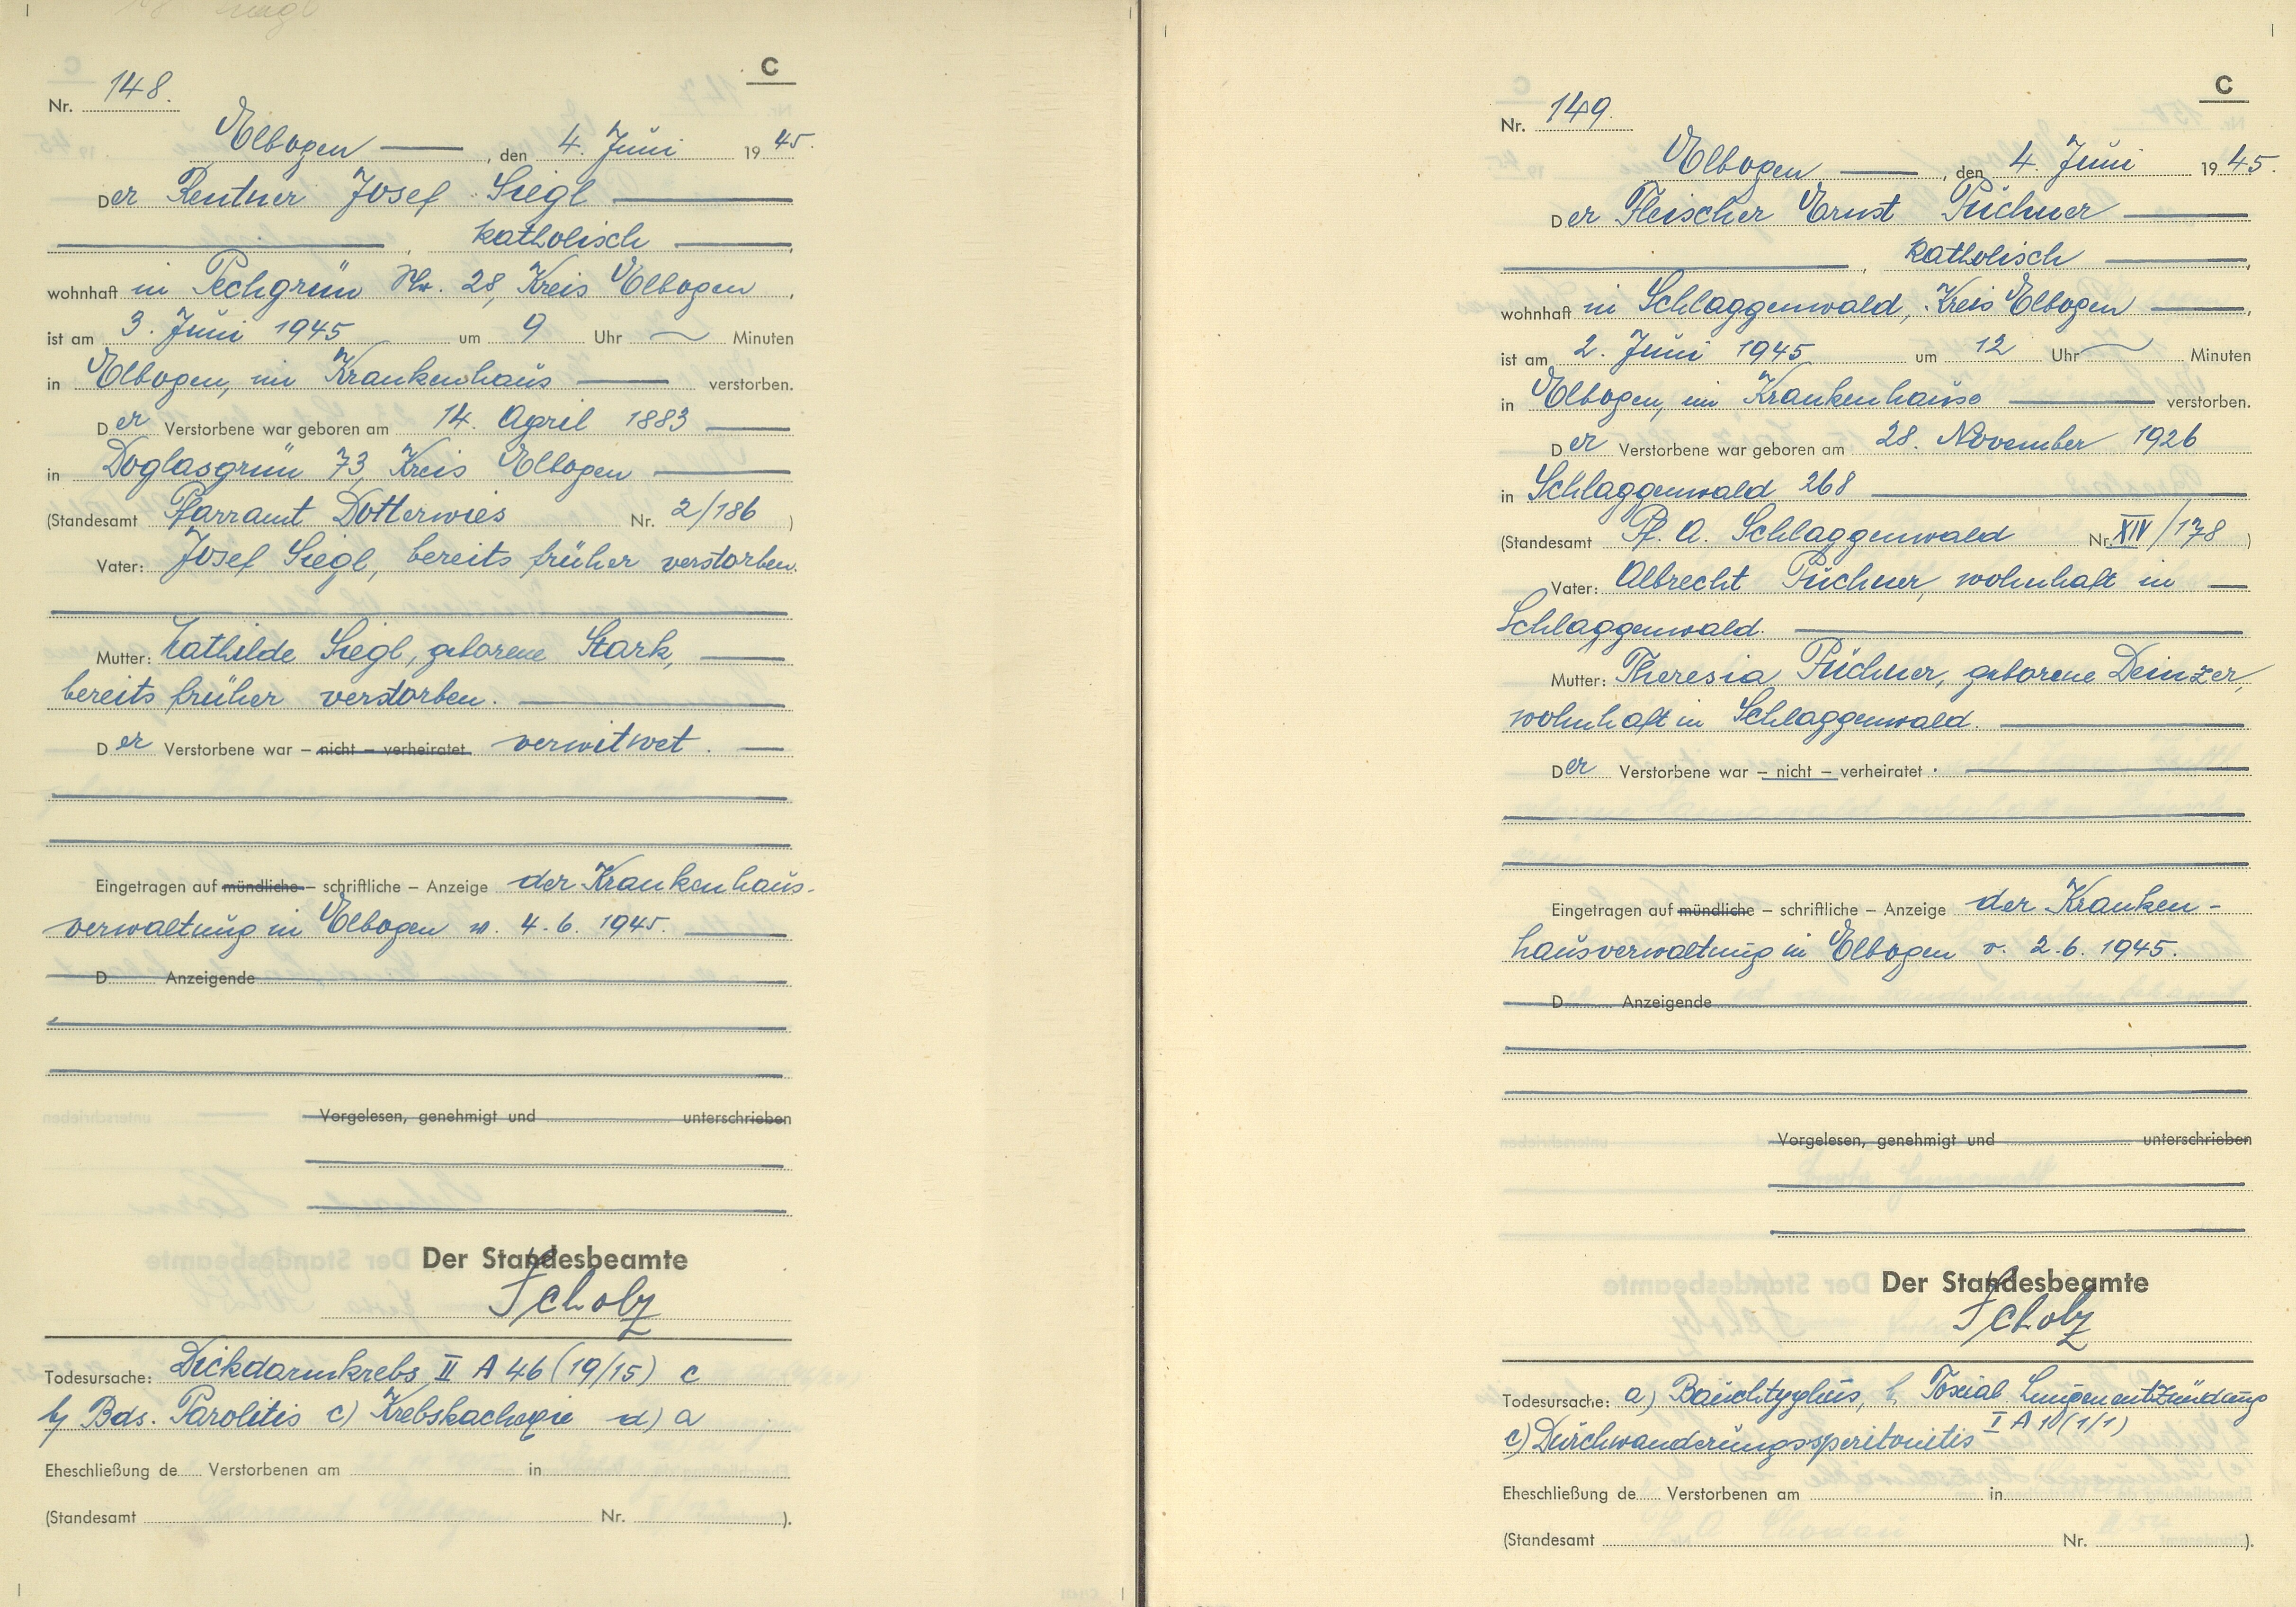 C
Nr. 148.
Elbogen, den 4. Juni 1945.
Der Rentner Josef Siegl
, katholisch,
wohnhaft in Pechgrün Nr. 28, Kreis Elbogen,
ist am 3. Juni 1945 um 9 Uhr Minuten
in Elbogen, im Krankenhaus verstorben.
Der Verstorbene war geboren am 14. April 1883
in Doglasgrün 73, Kreis Elbogen
(Standesamt Pfarramt Dotterwies Nr. 2/186)
Vater: Josef Siegl, bereits früher verstorben.
Mutter: Mathilde Siegl, geborene Stark,
bereits früher verstorben.
Der Verstorbene war – nicht – verheiratet verwitwet.
Eingetragen auf mündliche – schriftliche – Anzeige der Krankenhaus-
verwaltung in Elbogen v. 4.6.1945.
D Anzeigende
Vorgelesen, genehmigt und unterschrieben
Der Standesbeamte
Scholz
Todesursache: Dickdarmkrebs II A 46 (19/15) c
b) Bds. Parotitis c) Krebskachexie d) a
Eheschließung de Verstorbenen am in
(Standesamt Nr. ).
C
Nr. 149.
Elbogen, den 4. Juni 1945.
Der Fleischer Ernst Püchner
, katholisch,
wohnhaft in Schlaggenwald, Kreis Elbogen,
ist am 2. Juni 1945 um 12 Uhr Minuten
in Elbogen, im Krankenhause verstorben.
Der Verstorbene war geboren am 28. November 1926
in Schlaggenwald 268
(Standesamt Pf. A. Schlaggenwald Nr. XIV/178)
Vater: Albrecht Püchner, wohnhaft in
Schlaggenwald.
Mutter: Theresia Püchner, geborene Deinzer,
wohnhaft in Schlaggenwald.
Der Verstorbene war – nicht – verheiratet.
Eingetragen auf mündliche – schriftliche – Anzeige der Kranken-
hausverwaltung in Elbogen v. 2.6.1945.
D Anzeigende
Vorgelesen, genehmigt und unterschrieben
Der Standesbeamte
Scholz
Todesursache: a) Bauchtyphus, b. Lungenentzündung
c) Durchwanderungsperitonitis I A 10 (1/1)
Eheschließung de Verstorbenen am in
(Standesamt Nr. ).